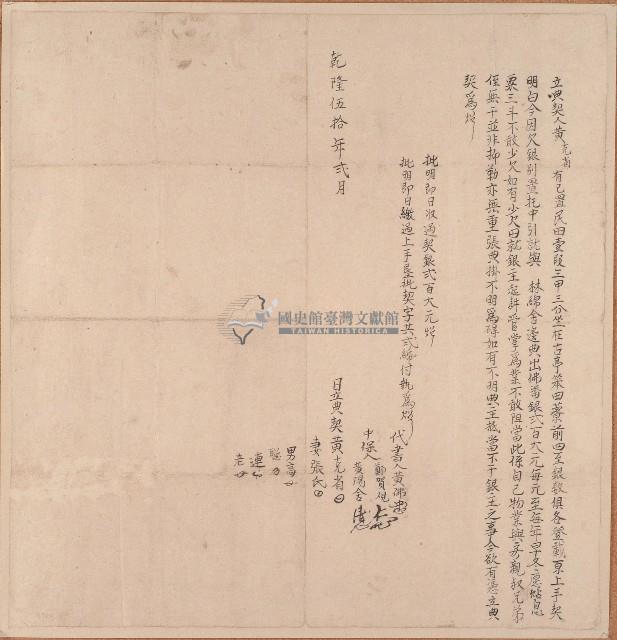 立典契人黃克省有己置民田壹段三甲三分坐在古亭笨田藔前四至銀数俱各登載原上手契
明白今因欠銀別置托中引就與 林綿舍邊典出佛番銀弍百大元每元至每年早冬愿貼息
粟三斗不敢少欠如有少欠田就銀主起耕管掌為業不敢阻當此係自己物業與房親叔兄弟
侄無干並非抑勒亦無重張典掛不明為碍如有不明典主抵當不干銀主之事今欲有憑立典
契為炤
批明即日収過契銀弍百大元炤
批明即日繳過上手墾批契字共弍紙付執為炤
代書人黃佛
中保人鄭賀觀
黃陽舍
日立典契黃克省
妻張氏
男高
聰
連
老
乾隆伍拾年弍月
國史館臺灣文獻館
TAIWAN HISTORICA